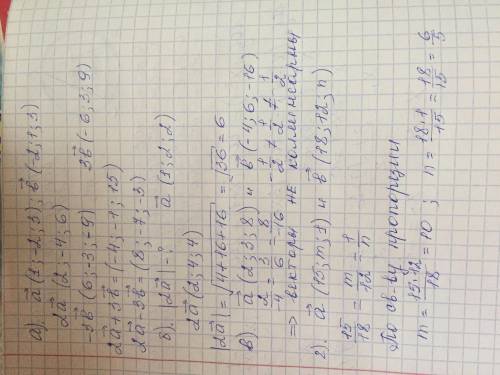 а). a⃗ (1; -2; 3); b⃗ (-2; 1; 3)
2a⃗ (2; -4; 6) 3b⃗ (-6; 3; 9)
-3b⃗ (6; -3; -9)
2a⃗ + 3b⃗ = (-4; -1; 15)
2a⃗ - 3b⃗ = (8; -7; -3)
б). |2a⃗| - ? a⃗ (1; 2; 2)
2a⃗ (2; 4; 4)
|2a⃗| = √4+16+16 = √36 = 6
в). a⃗ (2; 3; 8) и b⃗ (-4; 6; -16)
2/-4 = 3/6 = 8/-16 -1/2 ≠ 1/2 ≠ -1/2
=> векторы не коллинеарны
г). a⃗ (15; m; 1) и b⃗ (18; 12; n)
15/18 = m/12 = 1/n
По св-ву пропорции
m = 15·12/18 = 10; n = 18·1/15 = 18/15 = 6/5